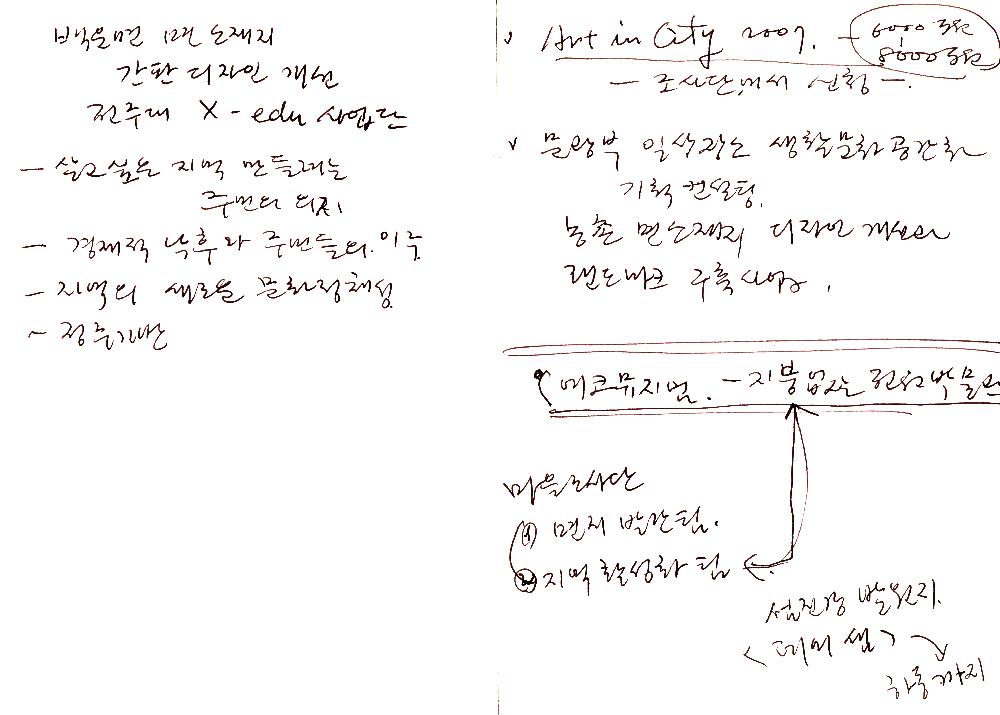 백운면 면 소재지
간판 디자인 개선
전주대 X-edu 사업단
- 살고싶은 지역 만들기는
주민의 의지
- 경제적 낙후와 주민들의 이주
- 지역의 새로운 문화정체성
- 정주기반
✓ Art in City 2007. - 6000만원
8000만원
- 조사단에서 신청 -.
✓ 문광부 일상장소 생활문화공간화
기획 컨설팅.
농촌 면소재지 디자인 개선과
랜드마크 구축사업.
에코뮤지엄. - 지붕없는 전원박물관
마을조사단
① 면지 발간팀.
② 지역 활성화 팀
섬진강 발원지.
<데미샘>
하동까지